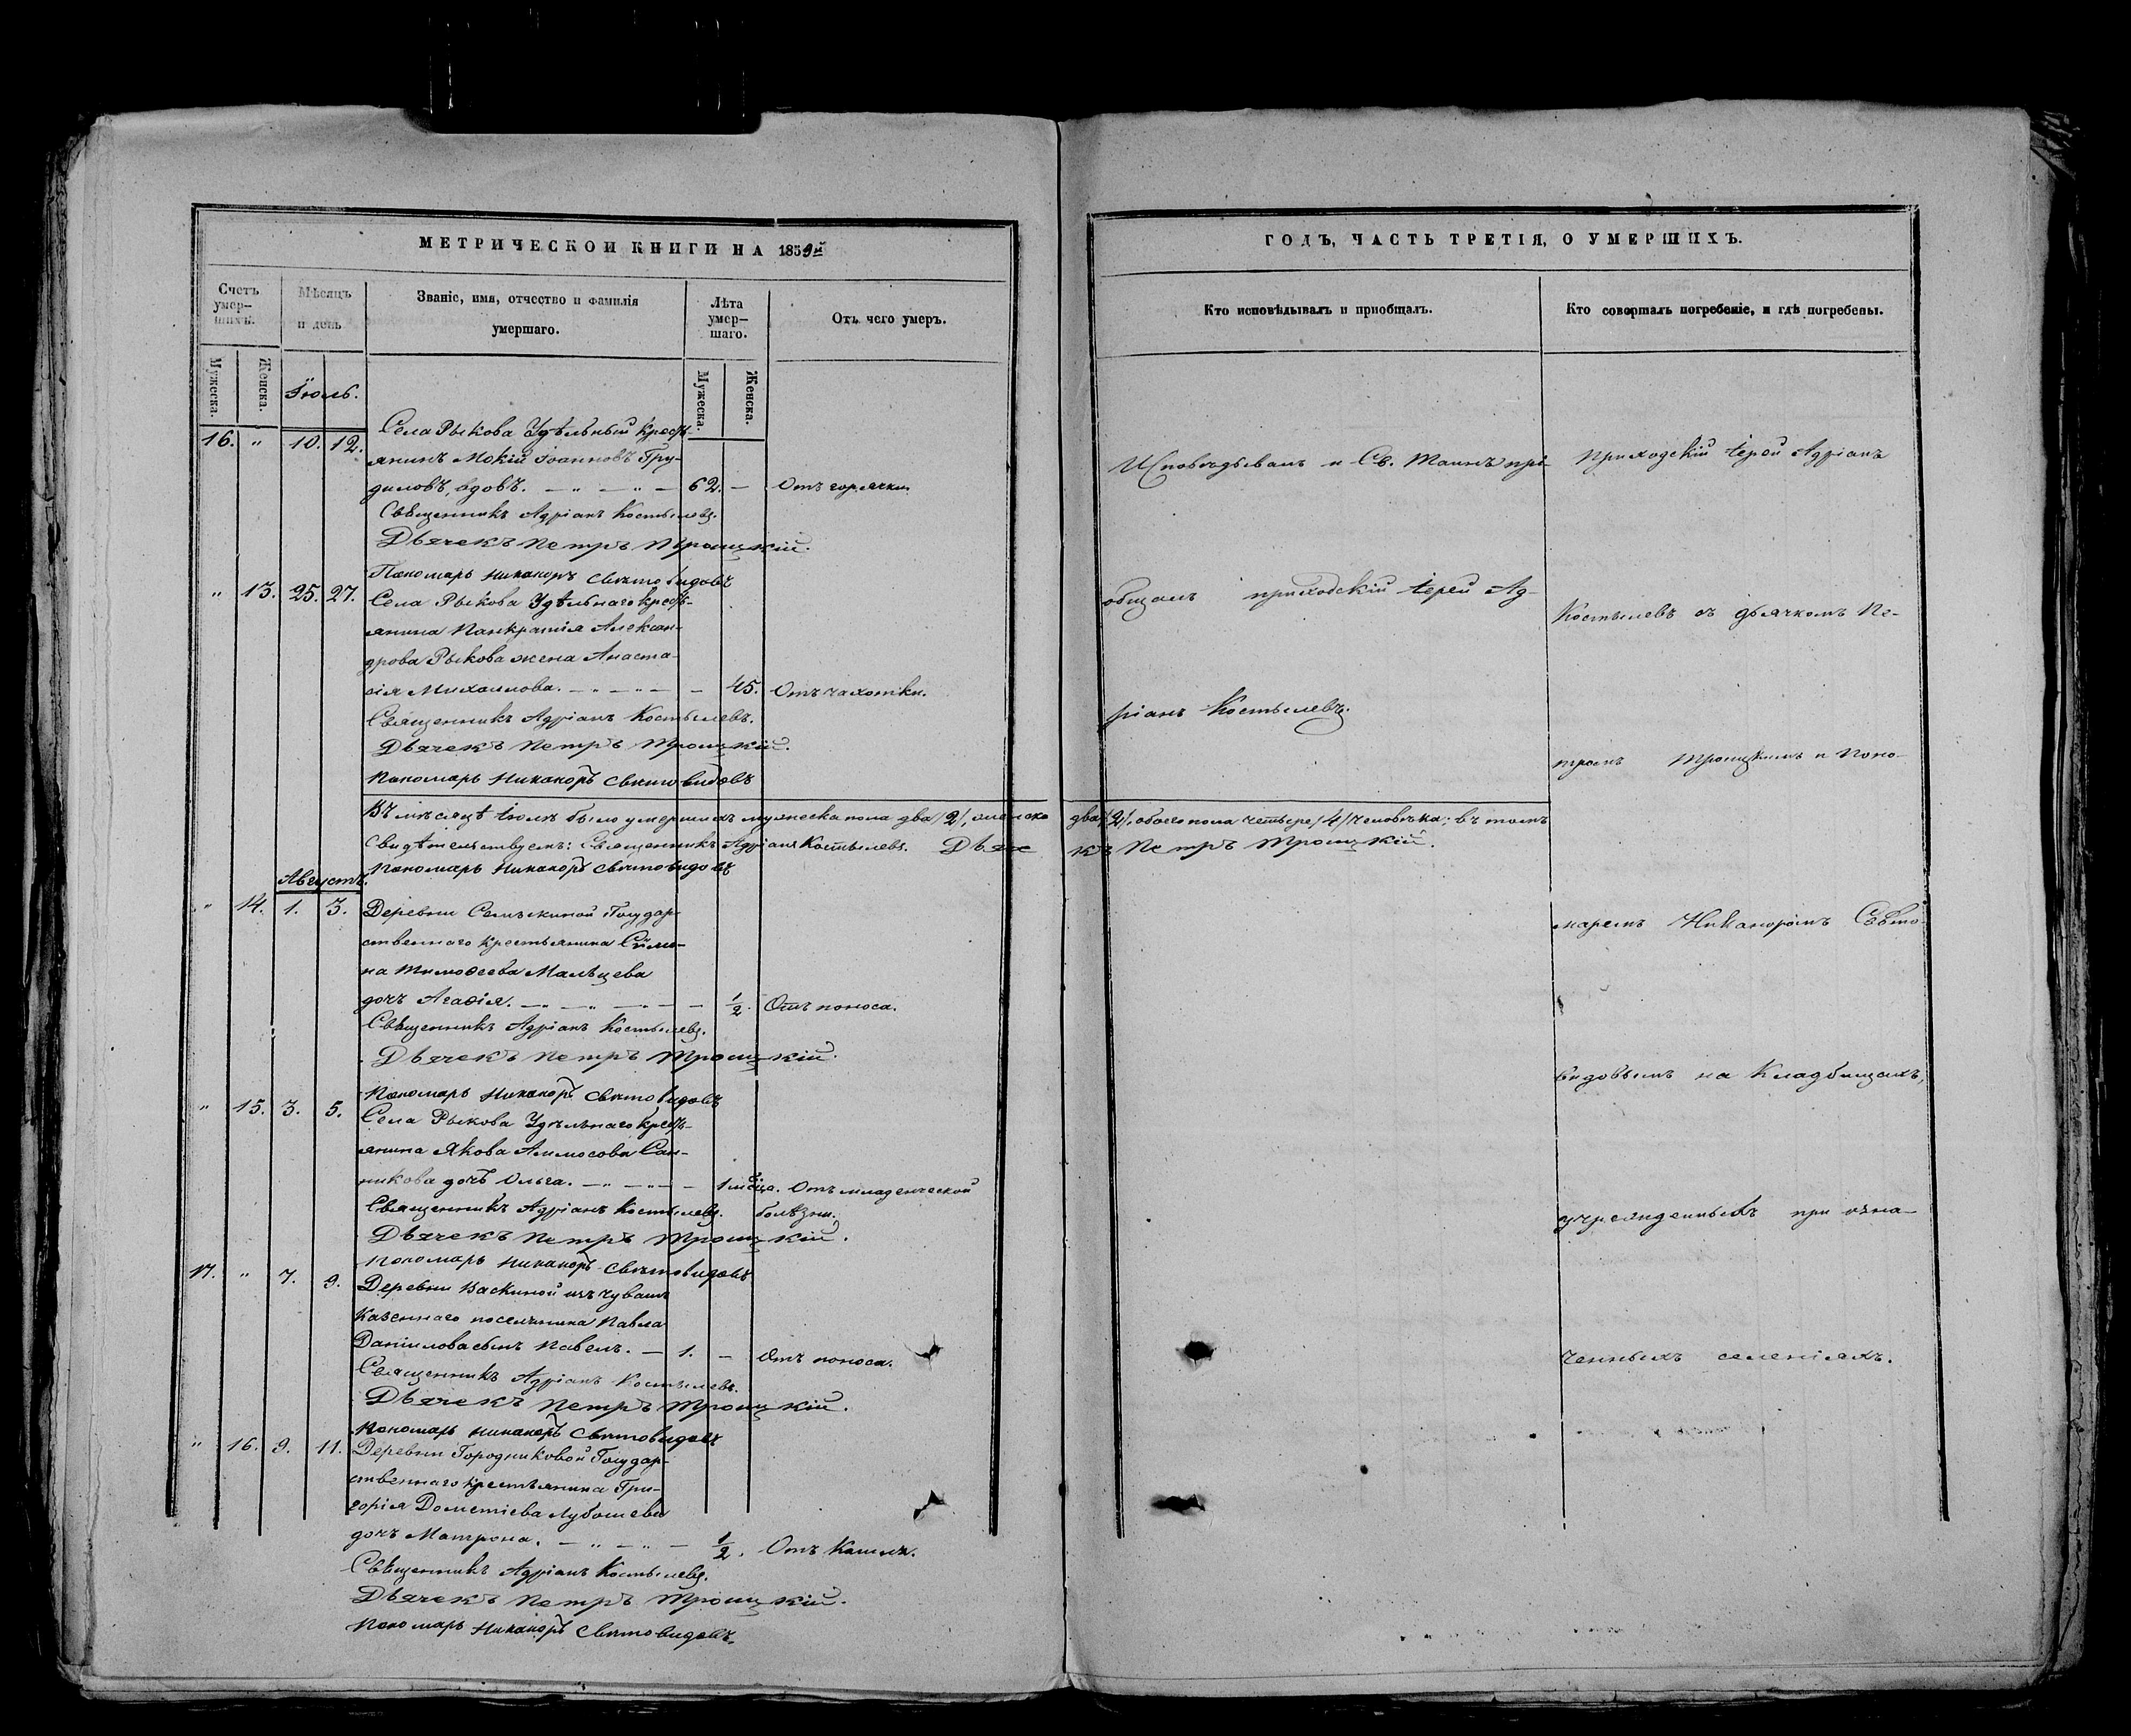 МЕТРИЧЕСКОЙ КНИГИ НА 1859й
Счетъ умер-шихъ.
Мѣсяцъ и день
Званіе, имя, отчество и фамилія умершаго.
Лѣта умер-шаго.
Отъ чего умеръ.
Мужеска.
Женска.
Мужеска.
Женска.
Іюль.
16. " 10. 12. Села Рыкова Удѣльный кресть-
янинъ Мокій Іоанновъ Гру-
диловъ, вдовъ. — " — " — 62. — Отъ горячки.
Священникъ Адріанъ Костылевъ.
Дьячекъ Петръ Троицкій.
Пономарь Никаноръ Свѣтовидовъ
" 13. 25. 27. Села Рыкова Удѣльнаго кресть-
янина Панкратія Алексан-
дрова Рыкова жена Анаста-
сія Михаилова. — " — " — — 45. Отъ чахотки.
Священникъ Адріанъ Костылевъ.
Дьячекъ Петръ Троицкій.
Пономарь Никаноръ Свѣтовидовъ
Въ мѣсяцѣ іюлѣ было умершихъ мужеска пола два /2/, женска два /2/, обоего пола четыре /4/ человѣка; въ томъ
свидѣтельствуемъ: Священникъ Адріанъ Костылевъ. Дьячекъ Петръ Троицкій.
Пономарь Никаноръ Свѣтовидовъ
Августъ.
" 14. 1. 3. Деревни Государ-
ственнаго крестьянина
на Тимофеева Мальцева
дочь Агафія. — " — " — " — — 1/2. Отъ поноса.
Священникъ Адріанъ Костылевъ.
Дьячекъ Петръ Троицкій.
Пономарь Никаноръ Свѣтовидовъ
" 15. 3. 5. Села Рыкова Удѣльнаго кресть-
янина Якова Сан-
никова дочь Ольга. — " — " — — 1 мсца. Отъ младенческой
болѣзни.
Священникъ Адріанъ Костылевъ.
Дьячекъ Петръ Троицкій.
Пономарь Никаноръ Свѣтовидовъ
17. " 7. 9. Деревни Васкиной изъ чувашъ
Казеннаго поселянина Павла
Даніилова сынъ Павелъ. — 1. — Отъ поноса.
Священникъ Адріанъ Костылевъ.
Дьячекъ Петръ Троицкій.
Пономарь Никаноръ Свѣтовидовъ
" 16. 9. 11. Деревни Городниковой Государ-
ственнаго крестьянина Гри-
горія Дометіева
дочь Матрона. — " — " — 1/2. Отъ Кашля.
Священникъ Адріанъ Костылевъ.
Дьячекъ Петръ Троицкій.
Пономарь Никаноръ Свѣтовидовъ.
ГОДЪ, ЧАСТЬ ТРЕТІЯ, О УМЕРШИХЪ.
Кто исповѣдывалъ и пріобщалъ.
Кто совершалъ погребеніе, и гдѣ погребены.
Исповѣдывалъ и Св. Таинъ прі-
общалъ приходскій іерей Ад-
ріанъ Костылевъ.
Приходскій іерей Адріанъ
Костылевъ съ дьячкомъ Пе-
тромъ Троицкимъ и Поно-
маремъ Никаноромъ Свѣто-
видовымъ на Кладбищахъ,
учрежденныхъ при озна-
ченныхъ селеніяхъ.